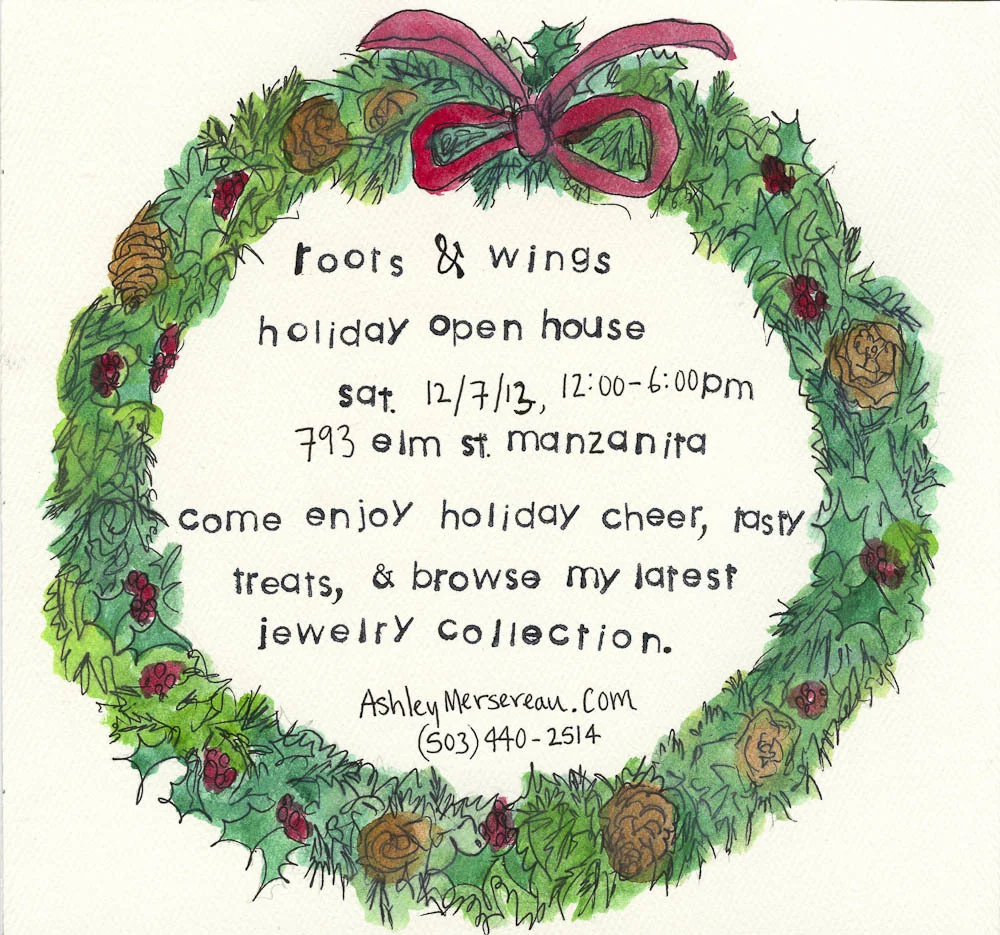 roots & wings
holiday open house
sat. 12/7/13, 12:00-6:00pm
793 elm st. manzanita
come enjoy holiday cheer, tasty
treats, & browse my latest
jewelry collection.
AshleyMersereau.com
(503) 440-2514